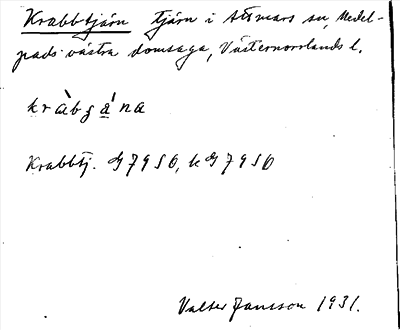 Krabbtjärn tjärn i Attmars sn, Medel-
pads västra domsaga, Västernorrlands l.
kràbʒána
Krabbtj. G7950, k G7950
Valter Jansson 1931.